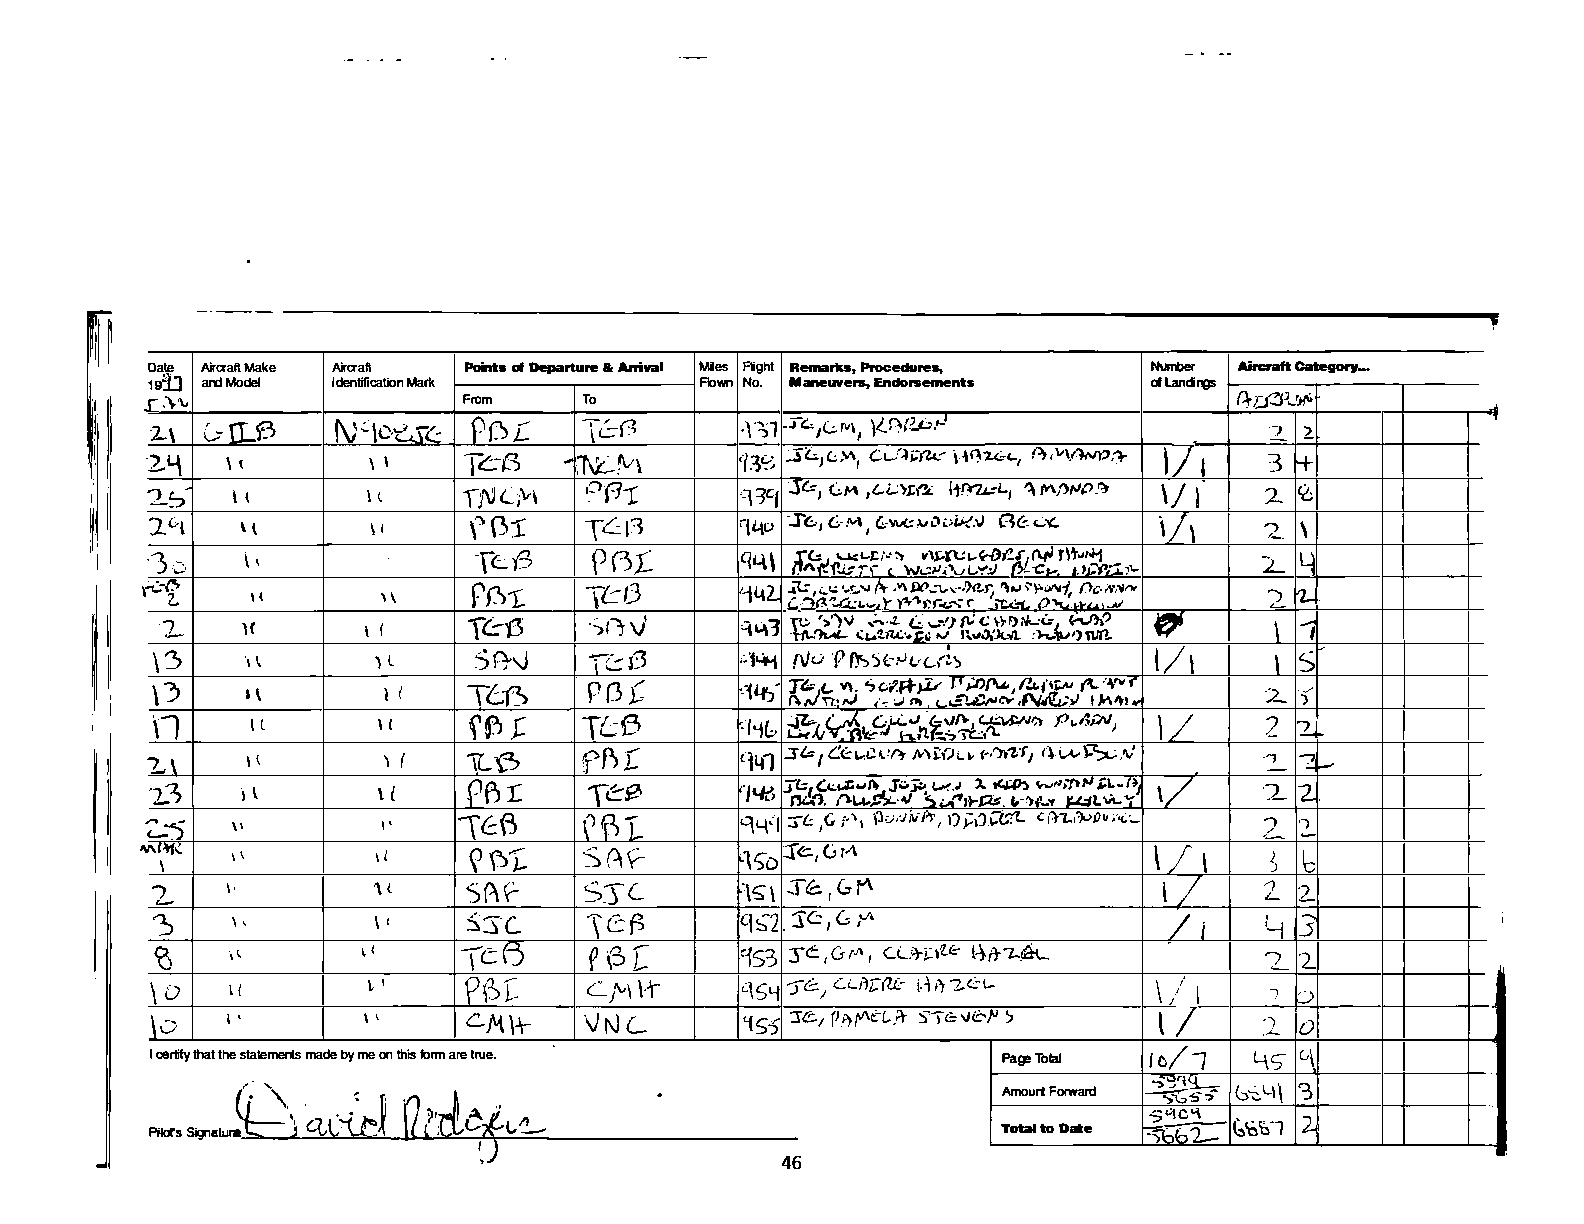 Date Aircraft Make Aircraft Points of Departure & Arrival Miles Flight Remarks, Procedures, Number Aircraft Category...
1997 and Model Identification Mark Flown No. Maneuvers, Endorsements of Landings
JAN From To AIRPLANE
21 GIIB N908JE PBI TEB 937 JE, GM, KAREN 2 2
24 " " TEB TNCM 938 JE, GM, CLAIRE HAZEL, AMANDA 1/1 3 4
25 " " TNCM PBI 939 JE, GM, CLAIRE HAZEL, AMANDA 1/1 2 8
29 " " PBI TEB 940 JE, GM, GWENDOLYN BECK 1/1 2 1
30 " TEB PBI 941 JE, CELINA MIDELFORT, ANTHONY
BARRETT, GWENDOLYN BECK 2 4
FEB
2 " " PBI TEB 942 JE, CELINA MIDELFORT, ANTHONY, DONNA
BARRETT, JOEL 2 2
2 " " TEB SAV 943 TO SAV
RUDDER 1 7
13 " " SAV TEB 944 NO PASSENGERS 1/1 1 5
13 " " TEB PBI 945 JE, GM, SOPHIE
CELINA 2 5
17 " " PBI TEB 946 JE, GM, EVA, CELINA
1/ 2 2
21 " " TEB PBI 947 JE, CELINA MIDELFORT, ALLISON 2 2
23 " " PBI TEB 948 JE, CELINA, 2 KIDS
ALLISON SOPHIE, GARY KERNEY 1/ 2 2
25 " " TEB PBI 949 JE, GM, DONNA, DIDIER 2 2
MAR
1 " " PBI SAF 950 JE, GM 1/1 3 6
2 " " SAF SJC 951 JE, GM 1/ 2 2
3 " " SJC TEB 952 JE, GM /1 4 3
8 " " TEB PBI 953 JE, GM, CLAIRE HAZEL 2 2
10 " " PBI CMH 954 JE, CLAIRE HAZEL 1/1 2 0
10 " " CMH VNC 955 JE, PAMELA STEVENS 1/ 2 0
I certify that the statements made by me on this form are true. Page Total 10/7 45 9
Amount Forward 5655 6841 3
Pilot's Signature David Rodgers Total to Date 5909 5662 6887 2
46